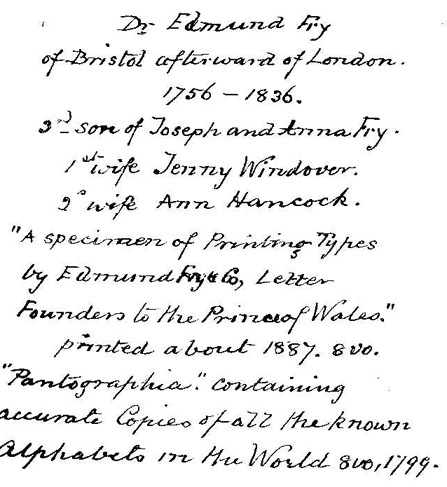 Dr Edmund Fry
of Bristol afterward of London.
1756 – 1836.
3rd son of Joseph and Anna Fry.
1st wife Jenny Windover.
2d wife Ann Hancock.
"A specimen of Printing Types
by Edmund Fry & Co, Letter
Founders to the Prince of Wales."
printed about 1887. 8vo.
"Pantographia". containing
accurate Copies of all the known
Alphabets in the World 8vo, 1799.